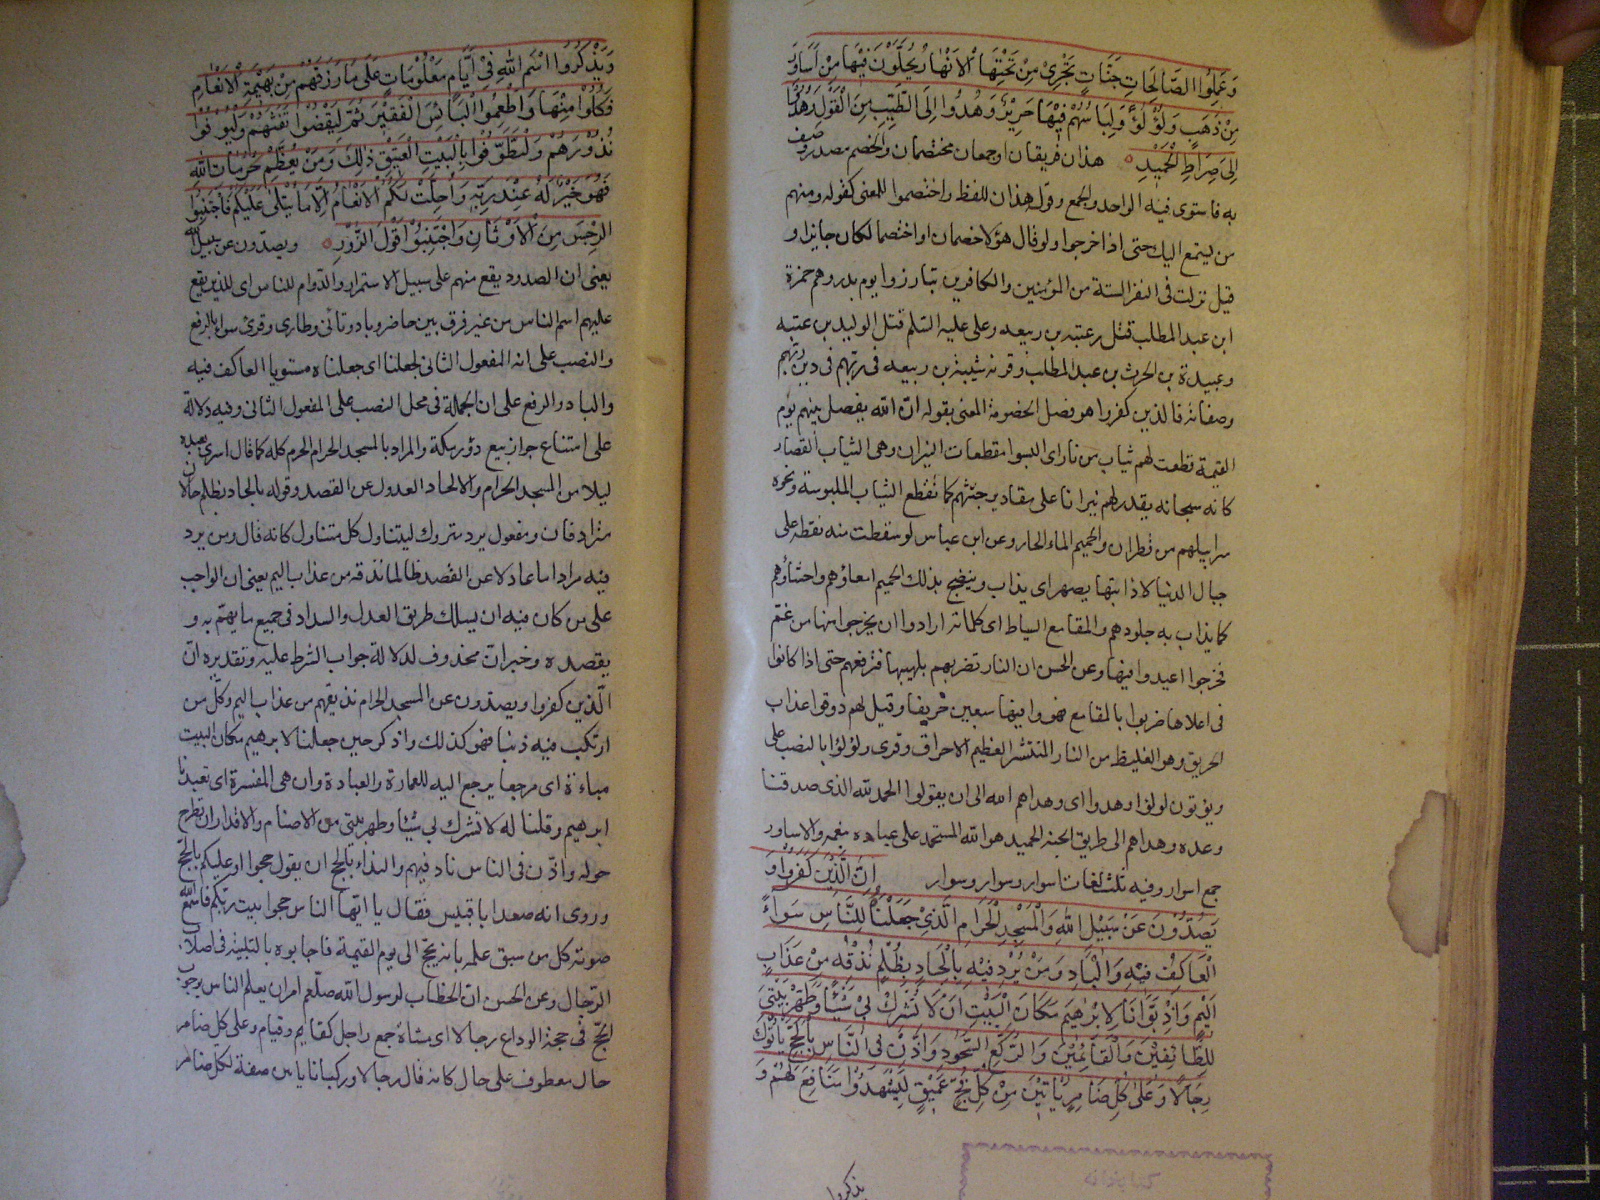 وَعَمِلُوا الصَّالِحَاتِ جَنَّاتٍ تَجْرِي مِنْ تَحْتِهَا الْاَنْهَارُ يُحَلَّوْنَ فِيهَا مِنْ اَسَاوِرَ
مِنْ ذَهَبٍ وَلُؤْلُؤًا وَلِبَاسُهُمْ فِيهَا حَرِيرٌ وَهُدُوا اِلَى الطَّيِّبِ مِنَ الْقَوْلِ وَهُدُوا
اِلَى صِرَاطِ الْحَمِيدِ هذان فريقان او جمعان مختصمان والخصم مصدر وصف
به فاستوى فيه الواحد والجمع وقوله هذان للفظ واختصموا للمعنى كقوله ومنهم
من يستمع اليك حتى اذا خرجوا ولو قال هؤلا خصمان او اختصما لكان جايزا و
قيل نزلت فى النفر الستة من المؤمنين والكافرين تبارزوا يوم بدر وهم حمزة
ابن عبد المطلب قتل عتبه بن ربيعه وعلى عليه السلم قتل الوليد بن عتبه
وعبيدة بن الحرث بن عبد المطلب وقرنه شيبة بن ربيعه فى ربهم فى دين ربهم
وصفاته فالذين كفروا هو فصل الخصومة المعنى بقوله ان الله يفصل بينهم يوم
القيمة قطعت لهم ثياب من نار اى البسوا مقطعات النيران وهى الثياب القصار
كانه سبحانه يقدر لهم نيرانا على مقادير جثثهم كما تقطع الثياب الملبوسة ونحوه
سرابيلهم من قطران والحميم الماء الحار وعن ابن عباس لو سقطت منه نقطة على
جبال الدنيا لاذابتها يصهر اى يذاب وينضج بذلك الحميم امعاؤهم واحشاؤهم
كما يذاب به جلودهم والمقامع السياط اى كلما ارادوا ان يخرجوا منها من غم
فخرجوا اعيدوا فيها وعن الحسن ان النار تضربهم بلهيبها فترفعهم حتى اذا كانوا
فى اعلاها ضربوا بالمقامع فهووا فيها سبعين خريفا وقيل لهم ذوقوا عذاب
الحريق وهو الغليظ من النار المنتشر العظيم الاحراق وقرى ولؤلؤا بالنصب على
ويؤتون لولؤا وهدوا اى وهداهم الله الى ان يقولوا الحمد لله الذى صدقنا
وعده وهداهم الى طريق الجنة الحميد هو الله المستحمد على عباده بنعمه والاساور
جمع اسوار وفيه ثلث لغات اسوار وسوار وسوار اِنَّ الَّذِينَ كَفَرُوا وَ
يَصُدُّونَ عَنْ سَبِيلِ اللهِ وَالْمَسْجِدِ الْحَرَامِ الَّذِي جَعَلْنَاهُ لِلنَّاسِ سَوَاءً
الْعَاكِفُ فِيهِ وَالْبَادِ وَمَنْ يُرِدْ فِيهِ بِاِلْحَادٍ بِظُلْمٍ نُذِقْهُ مِنْ عَذَابٍ
اَلِيمٍ وَاِذْ بَوَّأْنَا لِاِبْرٰهِيمَ مَكَانَ الْبَيْتِ اَنْ لَا تُشْرِكْ بِي شَيْئًا وَطَهِّرْ بَيْتِيَ
لِلطَّائِفِينَ وَالْقَائِمِينَ وَالرُّكَّعِ السُّجُودِ وَاَذِّنْ فِي النَّاسِ بِالْحَجِّ يَأْتُوكَ
رِجَالًا وَعَلَى كُلِّ ضَامِرٍ يَأْتِينَ مِنْ كُلِّ فَجٍّ عَمِيقٍ لِيَشْهَدُوا مَنَافِعَ لَهُمْ وَ
يذكروا
وَيَذْكُرُوا اسْمَ اللهِ فِي اَيَّامٍ مَعْلُومَاتٍ عَلَى مَا رَزَقَهُمْ مِنْ بَهِيمَةِ الْاَنْعَامِ
فَكُلُوا مِنْهَا وَاَطْعِمُوا الْبَائِسَ الْفَقِيرَ ثُمَّ لْيَقْضُوا تَفَثَهُمْ وَلْيُوفُوا
نُذُورَهُمْ وَلْيَطَّوَّفُوا بِالْبَيْتِ الْعَتِيقِ ذَلِكَ وَمَنْ يُعَظِّمْ حُرُمَاتِ اللهِ
فَهُوَ خَيْرٌ لَهُ عِنْدَ رَبِّهِ وَاُحِلَّتْ لَكُمُ الْاَنْعَامُ اِلَّا مَا يُتْلَى عَلَيْكُمْ فَاجْتَنِبُوا
الرِّجْسَ مِنَ الْاَوْثَانِ وَاجْتَنِبُوا قَوْلَ الزُّورِ ويصدون عن سبيل الله
يعنى ان الصدود يقع منهم على سبيل الاستمرار والدوام للناس اى للذين يقع
عليهم اسم الناس من غير فرق بين حاضر وباد وتانى وطارى وقرئ سواء بالرفع
والنصب على انه المفعول الثانى لجعلنا اى جعلناه مستويا العاكف فيه
والباد والرفع على ان الجملة فى محل النصب على المفعول الثانى وفيه دلالة
على امتناع جواز بيع دور مكة والمراد بالمسجد الحرام الحرم كله كما قال اسرى بعبده
ليلا من المسجد الحرام والالحاد العدول عن القصد وقوله بالحاد بظلم حالان
مترادفان ومفعول يرد متروك ليتناول كل متناول كانه قال ومن يرد
فيه مرادا ما عادلا عن القصد ظالما نذقه من عذاب اليم يعنى ان الواجب
على من كان فيه ان يسلك طريق العدل والسداد فى جميع ما يهتم به و
يقصده وخبر ان محذوف لدلالة جواب الشرط عليه وتقديره ان
الذين كفروا ويصدون عن المسجد الحرام نذيقهم من عذاب اليم وكل من
ارتكب فيه ذنبا فهو كذلك واذكر حين جعلنا لابرهيم مكان البيت
مباءة اى مرجعا يرجع اليه للعمارة والعبادة وان هى المفسرة اى تعبدنا
ابرهيم وقلنا له لا تشرك بى شيئا وطهر بيتى من الاصنام والاقذار ان تطرح
حوله واذن فى الناس ناد فيهم والنداء بالحج ان يقول حجوا او عليكم بالحج
وروى انه صعد ابا قبيس فقال يا ايها الناس حجوا بيت ربكم فاسمع الله
صوته كل من سبق علمه بانه يحج الى يوم القيمة فاجابوه بالتلبية فى اصلاب
الرجال وعن الحسن ان الخطاب لرسول الله صلعم امر ان يعلم الناس بوجوب
الحج فى حجة الوداع رجالا اى مشاة جمع راجل كقايم وقيام وعلى كل ضامر
حال معطوف على حال كانه قال رجالا وركبانا ياتين صفة لكل ضامر